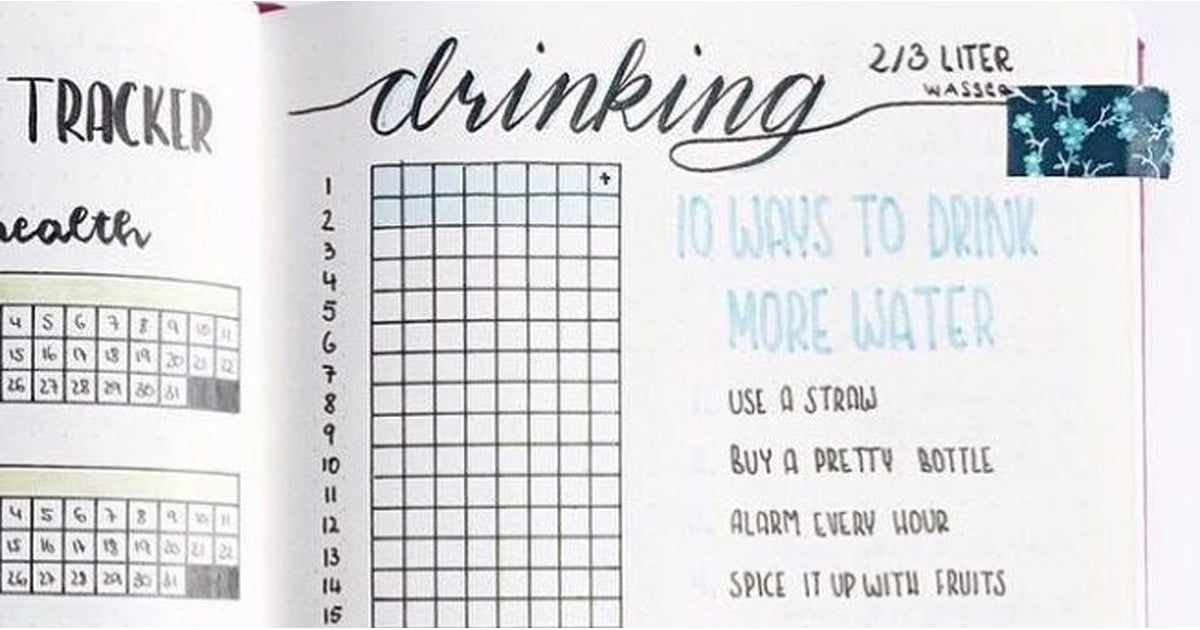 TRACKER
health
4 5 6 7 8 9 10 11
15 16 17 18 19 20 21 22
26 27 28 29 30 31
4 5 6 7 8 9 10 11
15 16 17 18 19 20 21 22
26 27 28 29 30 31
drinking
2/3 LITER
WASSER
1 +
2
3
4
5
6
7
8
9
10
11
12
13
14
15
10 WAYS TO DRINK
MORE WATER
1. USE A STRAW
2. BUY A PRETTY BOTTLE
3. ALARM EVERY HOUR
4. SPICE IT UP WITH FRUITS